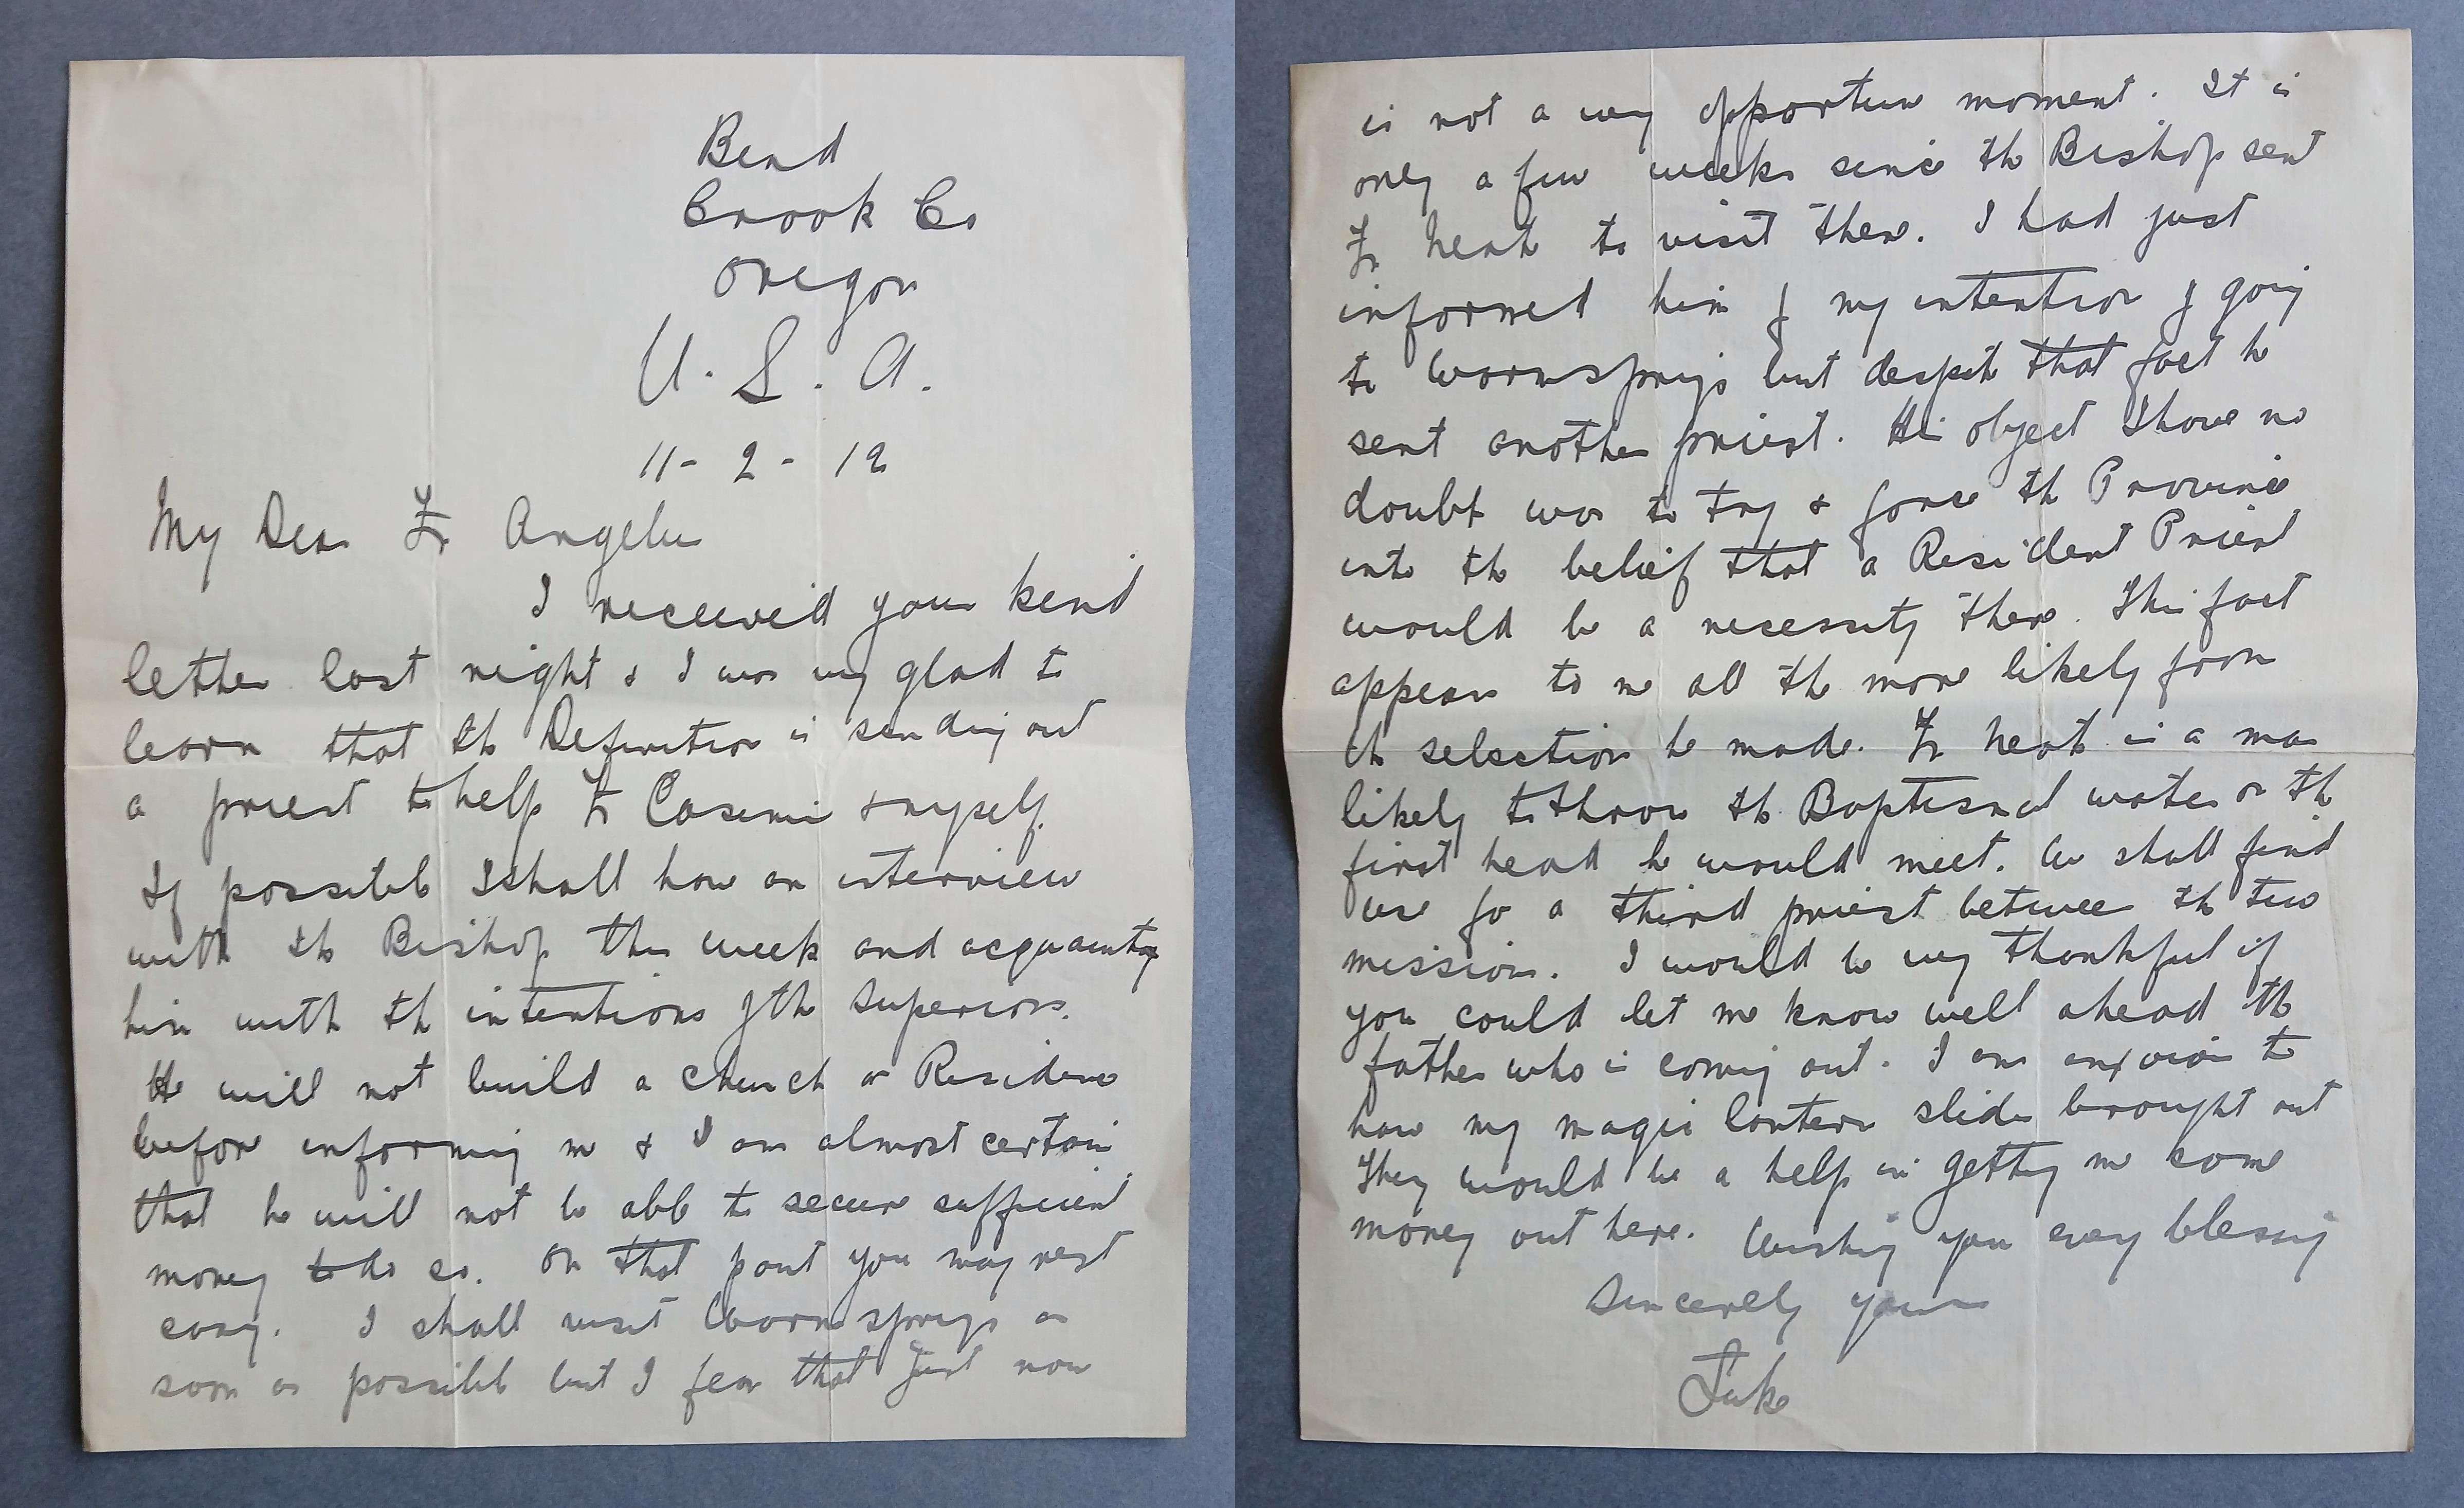 Bend
Crook Co
Oregon
U. S. A.
11 - 2 - 12
My Dear Fr Angelus
I received your kind
letter last night & I was very glad to
learn that the Definition is sending out
a priest to help Fr Casimir & myself.
If possible I shall have an interview
with the Bishop this week and acquainting
him with the intentions of the Superiors.
He will not build a church or Residence
before informing me & I am almost certain
that he will not be able to secure sufficient
money to do so. On that point you may rest
easy. I shall visit Warmsprings as
soon as possible but I fear that just now
is not a very opportune moment. It is
only a few weeks since the Bishop sent
Fr to visit there. I had just
informed him of my intention of going
to Warmsprings but despite that fact he
sent another priest. His object I have no
doubt was to try & force the Province
into the belief that a Resident Priest
would be a necessity there. This fact
appears to me all the more likely from
the selection he made. Fr is a man
likely to throw the Baptismal water on the
first head he would meet. We shall find
use for a third priest between the two
missions. I would be very thankful if
you could let me know well ahead the
father who is coming out. I am anxious to
have my magic lantern slides brought out
They would be a help in getting me some
money out here. Wishing you every blessing
Sincerely yours
Luke